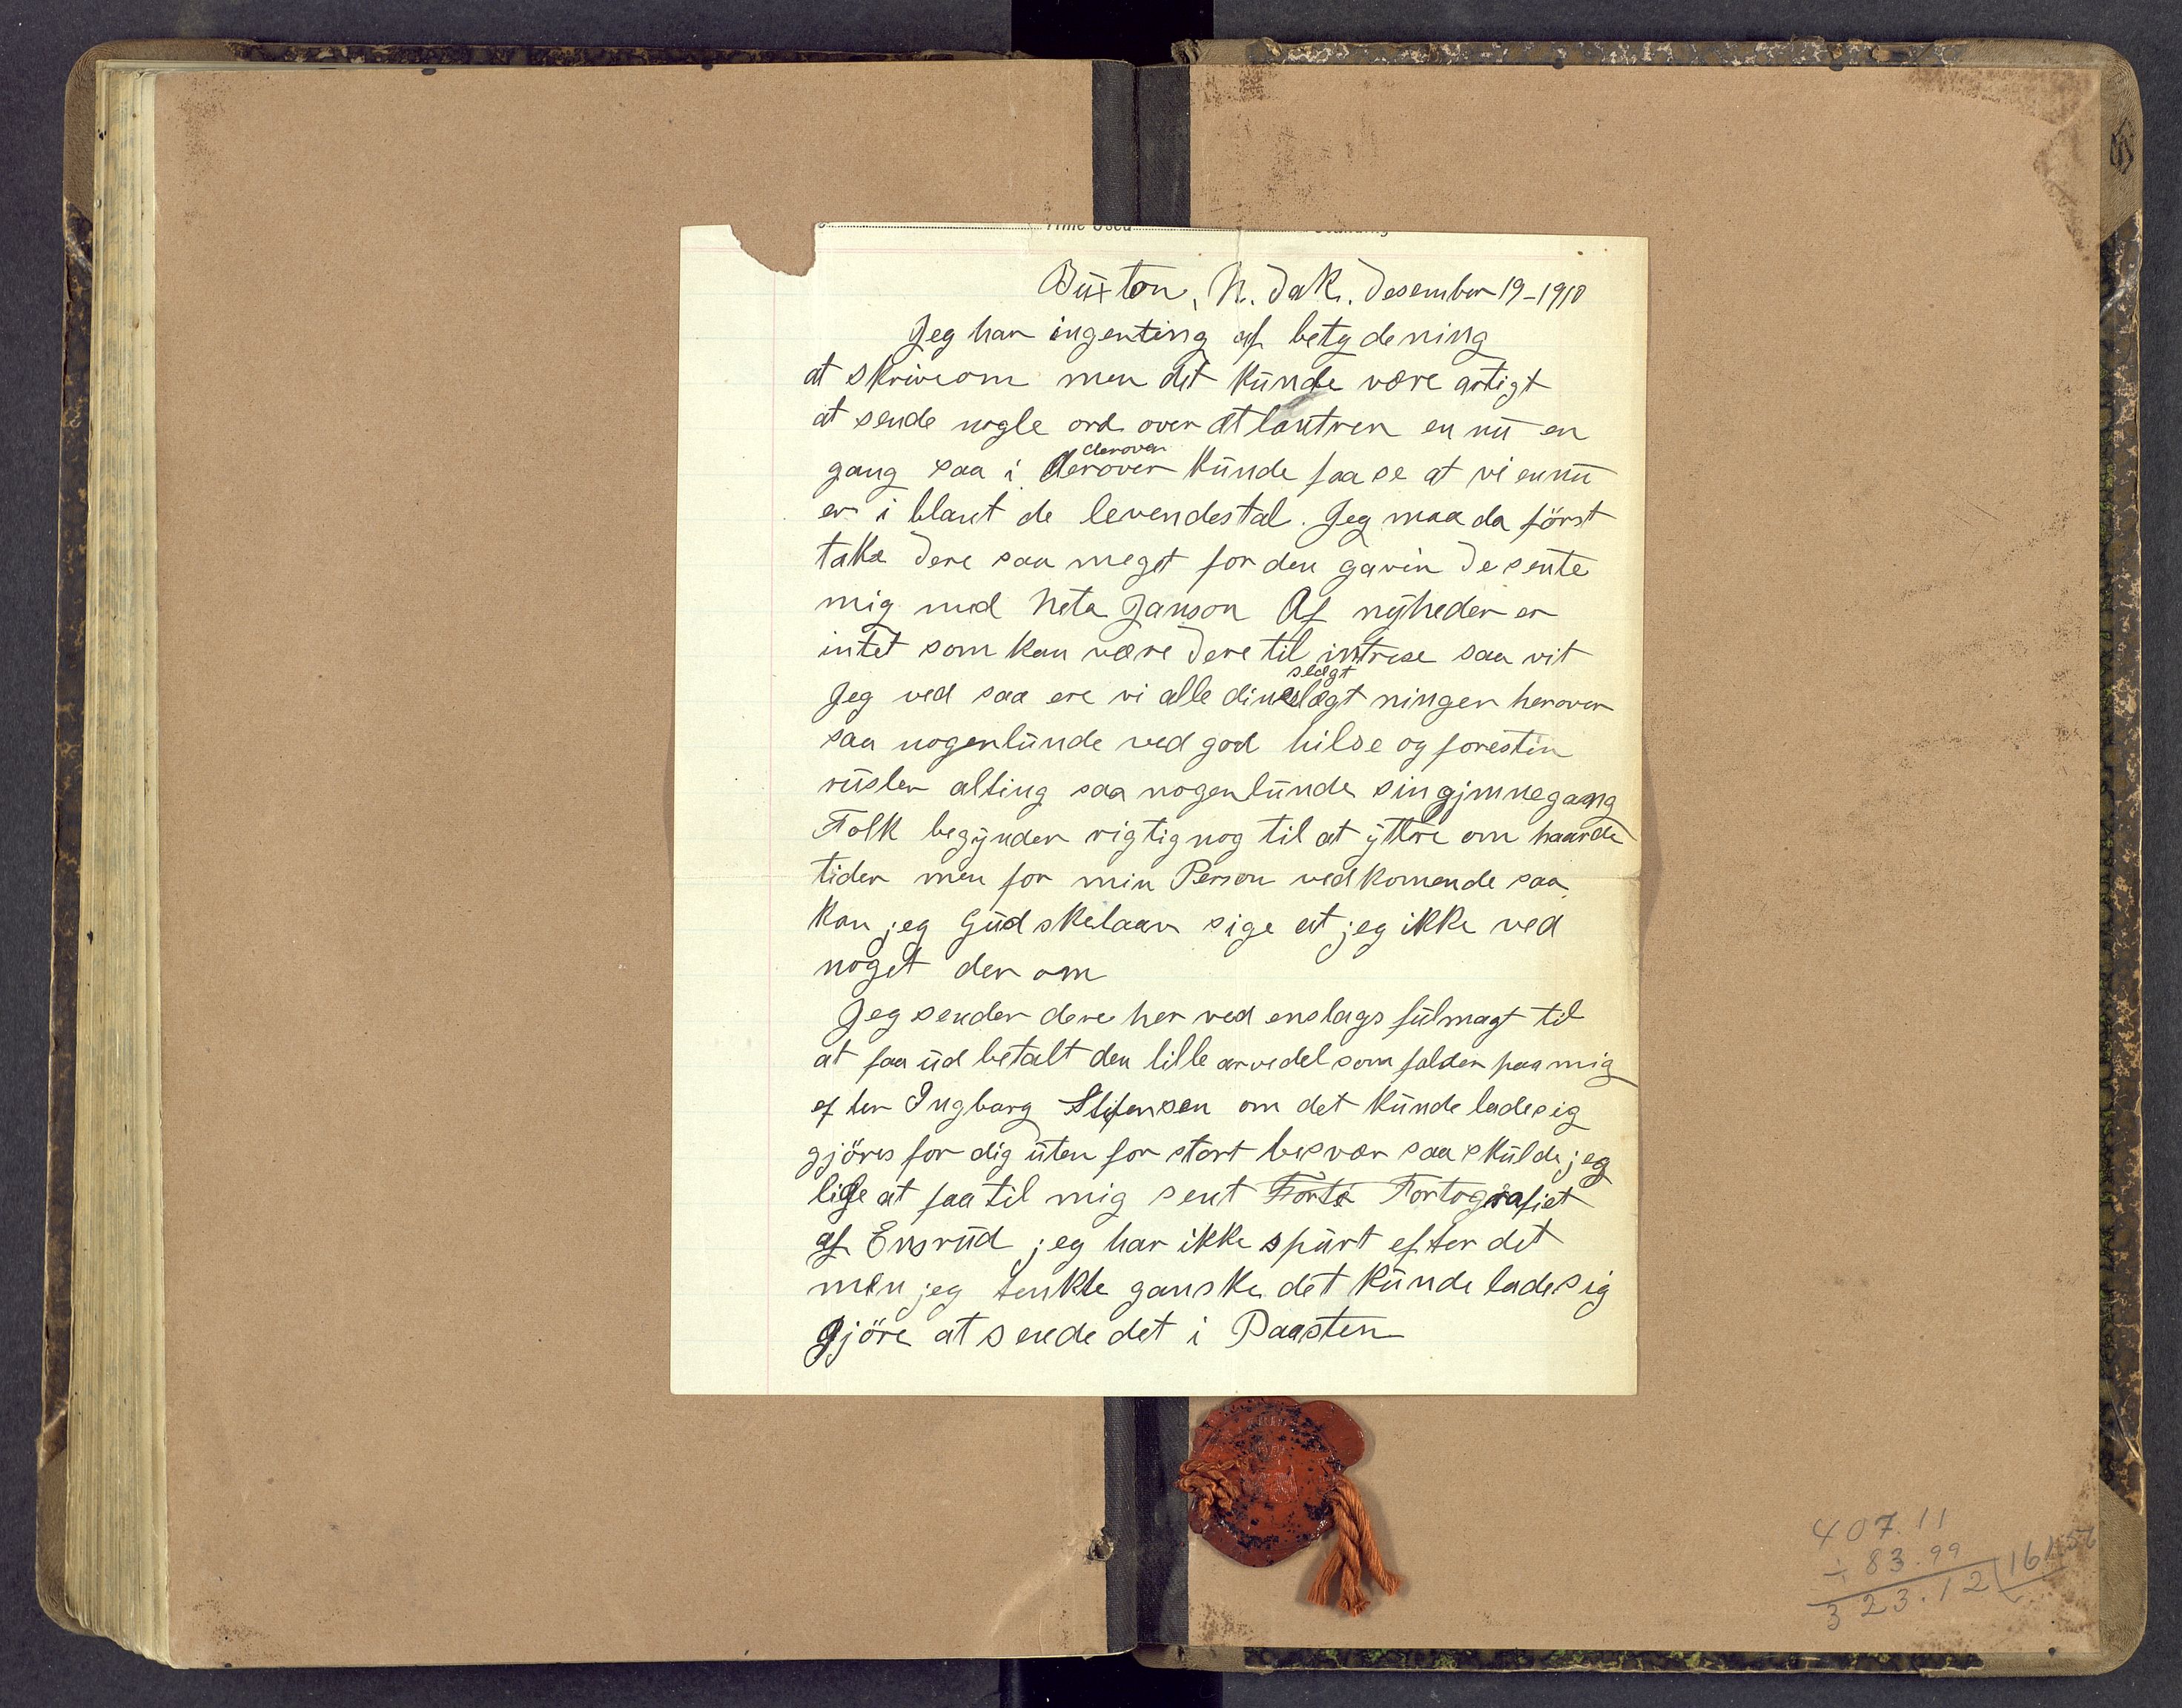 Time Used
Buxton, N. Dak. Desember 19-1910
Jeg har ingenting af betydening
at skrive om men det kunde være artigt
at sende nogle ord over Atlantren en nu en
derover
gang saa i derover kunde faa se at vi ennu
er i blant de levendestal. Jeg maa da först
take Dere saa meget for den gavin De sente
mig med Neta Janson Af nyheder er
intet som kan være Dere til intrese saa vit
slægt
Jeg ved saa ere vi alle dine slægtninger herover
saa nogenlunde ved god hilse og forestin
rusler alting saa nogenlunde sin gjmnegang
Folk begynder rigtignog til at yttre om haarde
tider men for min Person vedkomende saa
kan jeg Gudskelaav sige at jeg ikke ved
noget der om
Jeg sender dere her ved enslags fulmagt til
at faa ud betalt den lille arvedel som falder paa mig
efter Ingbarg Stefensen om det kunde lade sig
gjöres for dig uten for stort besvær saa skulde jeg
lige at faa til mig sent Forto Fortografiet
af Ensrud jeg har ikke spurt efter det
men jeg tenkte ganske det kunde lade sig
gjöre at sende det i Paasten
407.11
÷ 83.99
323.12 161.56